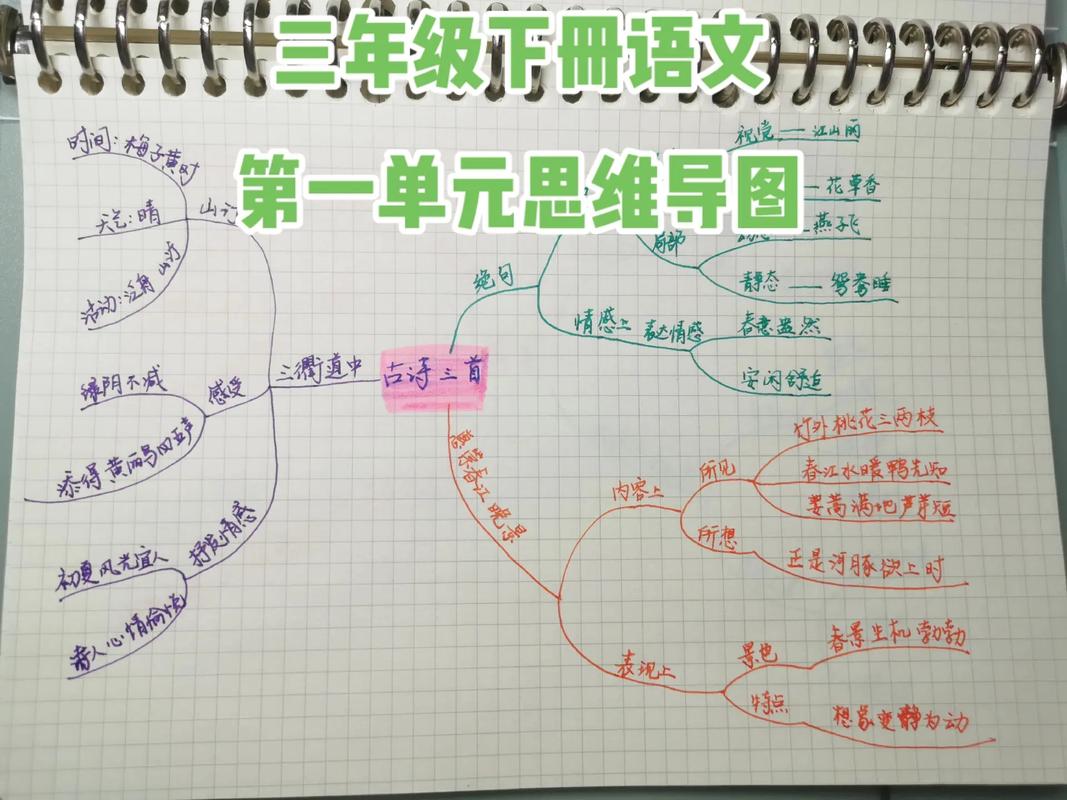 三年级下册语文
第一单元思维导图
古诗三首
绝句
视觉 — 江山丽
— 花草香
局部
— 燕子飞
静态 — 鸳鸯睡
情感上 表达情感
春意盎然
安闲舒适
三衢道中
山行
时间：梅子黄时
天气：晴
活动：泛舟 山行
感受
绿阴不减
添得黄丽鸟四五声
抒发情感
初夏风光宜人
诗人心情愉悦
惠崇春江晚景
内容上
所见
竹外桃花三两枝
春江水暖鸭先知
蒌蒿满地芦芽短
所想
正是河豚欲上时
表现上
景色
春景生机勃勃
特点
想象变静为动